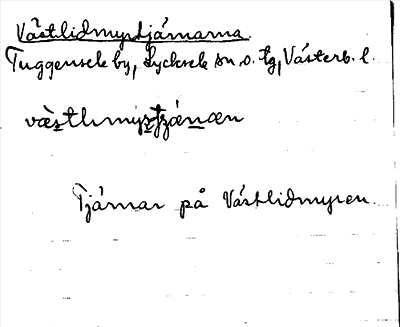 Västlidmyrtjärnarna
Tuggensele by, Lycksele sn. o. tg, Västerb. l.
Tjärnar på Västlidmyren.